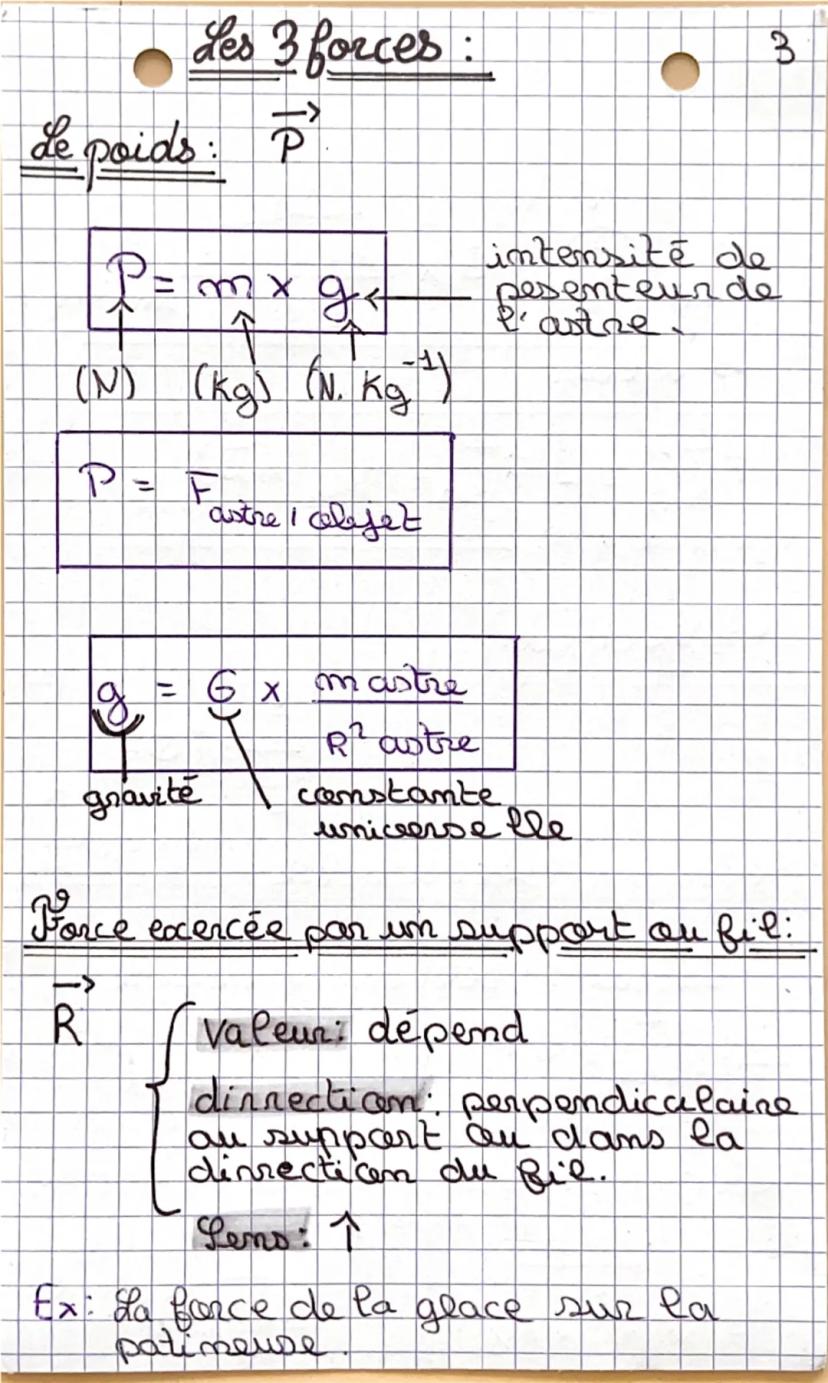 Les 3 forces : 3
Le poids : P→
P = m x g ← intensité de
pesenteur de
l'astre.
(N) (Kg) (N. Kg⁻¹)
P = F astre / objet
g = G x m astre
R² astre
gravité constante
universelle
Force excercée par un support ou fil :
R→
Valeur : dépend
dirrection : perpendiculaire
au support ou dans la
dirrection du fil.
Sens : ↑
Ex : La force de la glace sur la
patineuse.